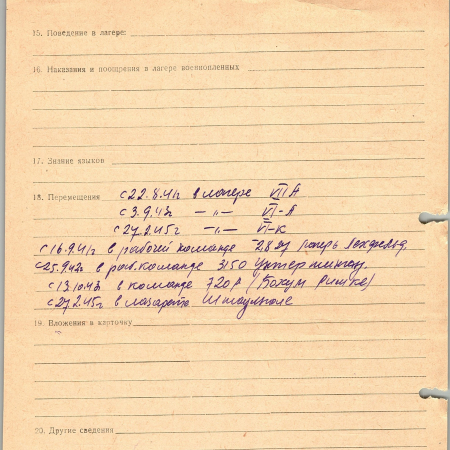 15. Поведение в лагере:
16. Наказания и поощрения в лагере военнопленных
17. Знание языков
18. Перемещения с 22.8.41г в лагере VII А
с 3.9.43г —〃— VI-А
с 27.2.45г —〃— VI-К
с 16.9.41г в рабочей команде 2827 лагерь Лехфельд
с 25.9.42г в раб. команде 3150
с 13.10.43 в команде 720Р (Бохум Римке)
с 27.2.45г в лазарете
19. Вложения в карточку
20. Другие сведения